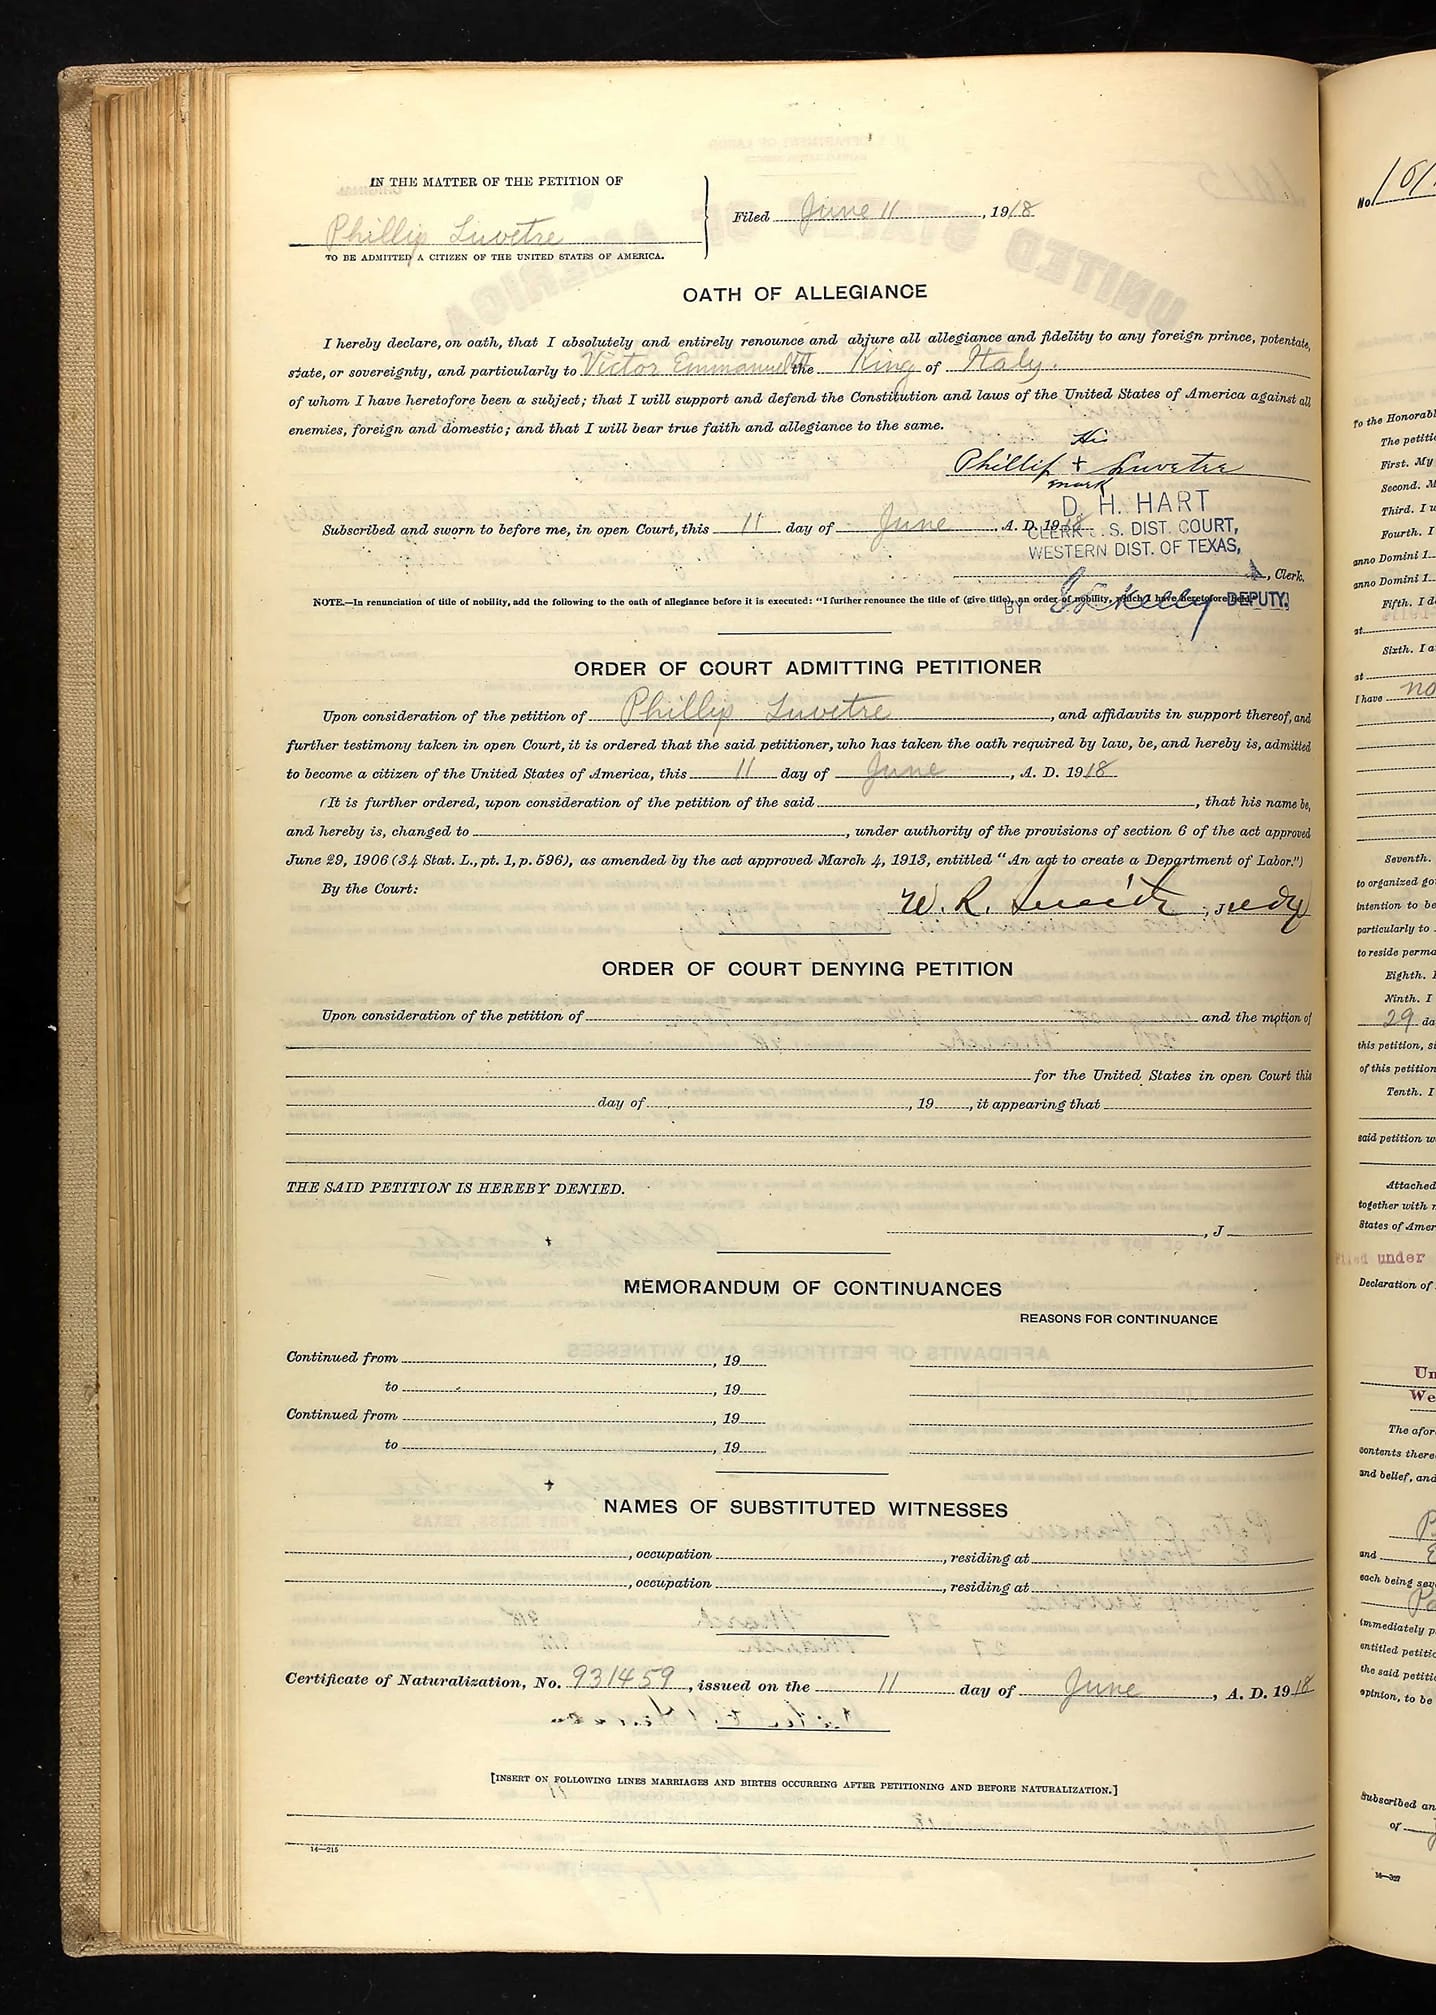 IN THE MATTER OF THE PETITION OF
Phillip Luvetre
TO BE ADMITTED A CITIZEN OF THE UNITED STATES OF AMERICA.
Filed June 11, 1918
OATH OF ALLEGIANCE
I hereby declare, on oath, that I absolutely and entirely renounce and abjure all allegiance and fidelity to any foreign prince, potentate,
state, or sovereignty, and particularly to Victor Emmanuel III the King of Italy.
of whom I have heretofore been a subject; that I will support and defend the Constitution and laws of the United States of America against all
enemies, foreign and domestic; and that I will bear true faith and allegiance to the same.
His
Phillip + Luvetre
mark
D. H. HART
Subscribed and sworn to before me, in open Court, this 11 day of June A. D. 1918
CLERK U. S. DIST. COURT,
WESTERN DIST. OF TEXAS,
, Clerk.
NOTE.—In renunciation of title of nobility, add the following to the oath of allegiance before it is executed: "I further renounce the title of (give title), an order of nobility, which I have heretofore held."
BY Kelly DEPUTY.
ORDER OF COURT ADMITTING PETITIONER
Upon consideration of the petition of Phillip Luvetre, and affidavits in support thereof, and
further testimony taken in open Court, it is ordered that the said petitioner, who has taken the oath required by law, be, and hereby is, admitted
to become a citizen of the United States of America, this 11 day of June, A. D. 1918
(It is further ordered, upon consideration of the petition of the said , that his name be,
and hereby is, changed to , under authority of the provisions of section 6 of the act approved
June 29, 1906 (34 Stat. L., pt. 1, p. 596), as amended by the act approved March 4, 1913, entitled "An act to create a Department of Labor.")
By the Court:
W. R. Smith, Judge
ORDER OF COURT DENYING PETITION
Upon consideration of the petition of and the motion of
for the United States in open Court this
day of , 19 , it appearing that
THE SAID PETITION IS HEREBY DENIED.
, J
MEMORANDUM OF CONTINUANCES
REASONS FOR CONTINUANCE
Continued from , 19
to , 19
Continued from , 19
to , 19
NAMES OF SUBSTITUTED WITNESSES
, occupation , residing at
, occupation , residing at
Certificate of Naturalization, No. 931459, issued on the 11 day of June, A. D. 1918
[INSERT ON FOLLOWING LINES MARRIAGES AND BIRTHS OCCURRING AFTER PETITIONING AND BEFORE NATURALIZATION.]
14—215
No
To the Honorabl
The petiti
First. My
Second. M
Third. I w
Fourth. I
anno Domini 1
anno Domini 1
Fifth. I d
at
Sixth. I a
at
I have no
Seventh.
to organized go
intention to be
particularly to
to reside perma
Eighth. I
Ninth. I
29 da
this petition, si
of this petition
Tenth. I
said petition w
Attached
together with m
States of Amer
Filed under
Declaration of
Un
We
The afor
contents there
and belief, and
and
each being sev
immediately p
entitled petitio
the said petiti
opinion, to be
Subscribed an
of
14—327